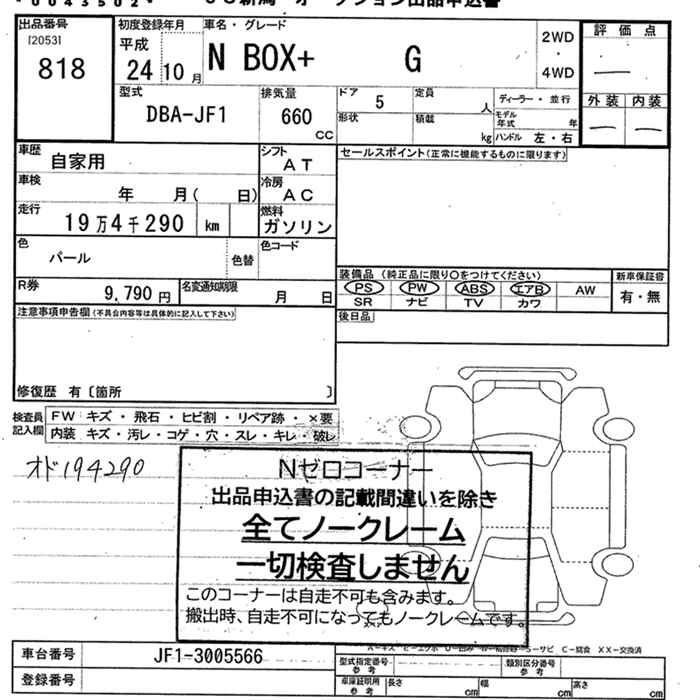 *0043502*
出品番号
[2053]
818
初度登録年月
平成
24 10 月
車名・グレード
N BOX+ G
2WD
・
4WD
評価点
―
外装 内装
― ―
型式
DBA-JF1
排気量
660
CC
ドア 5
定員 人
ディーラー・並行
形状
積載 kg
モデル年式 年
ハンドル 左・右
車歴
自家用
シフト
AT
セールスポイント(正常に機能するものに限ります)
車検
年 月( 日)
冷房
AC
走行
19万4千290 km
燃料
ガソリン
色
パール
色替
色コード
R券
9,790 円
名変通知期限
月 日
装備品 (純正品に限り○をつけてください)
新車保証書
PS PW ABS エアB AW
SR ナビ TV カワ
有・無
注意事項申告欄(不具合内容等は具体的に記入して下さい)
後日品
修復歴 有〔箇所 〕
検査員
記入欄
FW キズ・飛石・ヒビ割・リペア跡・×要
内装 キズ・汚レ・コゲ・穴・スレ・キレ・破レ
オド194290
Nゼロコーナー
出品申込書の記載間違いを除き
全てノークレーム
一切検査しません
このコーナーは自走不可も含みます。
搬出時、自走不可になってもノークレームです。
車台番号
JF1-3005566
登録番号
型式指定番号
参考
類別区分番号
参考
車庫証明用
参考
長さ cm
幅 cm
高さ cm